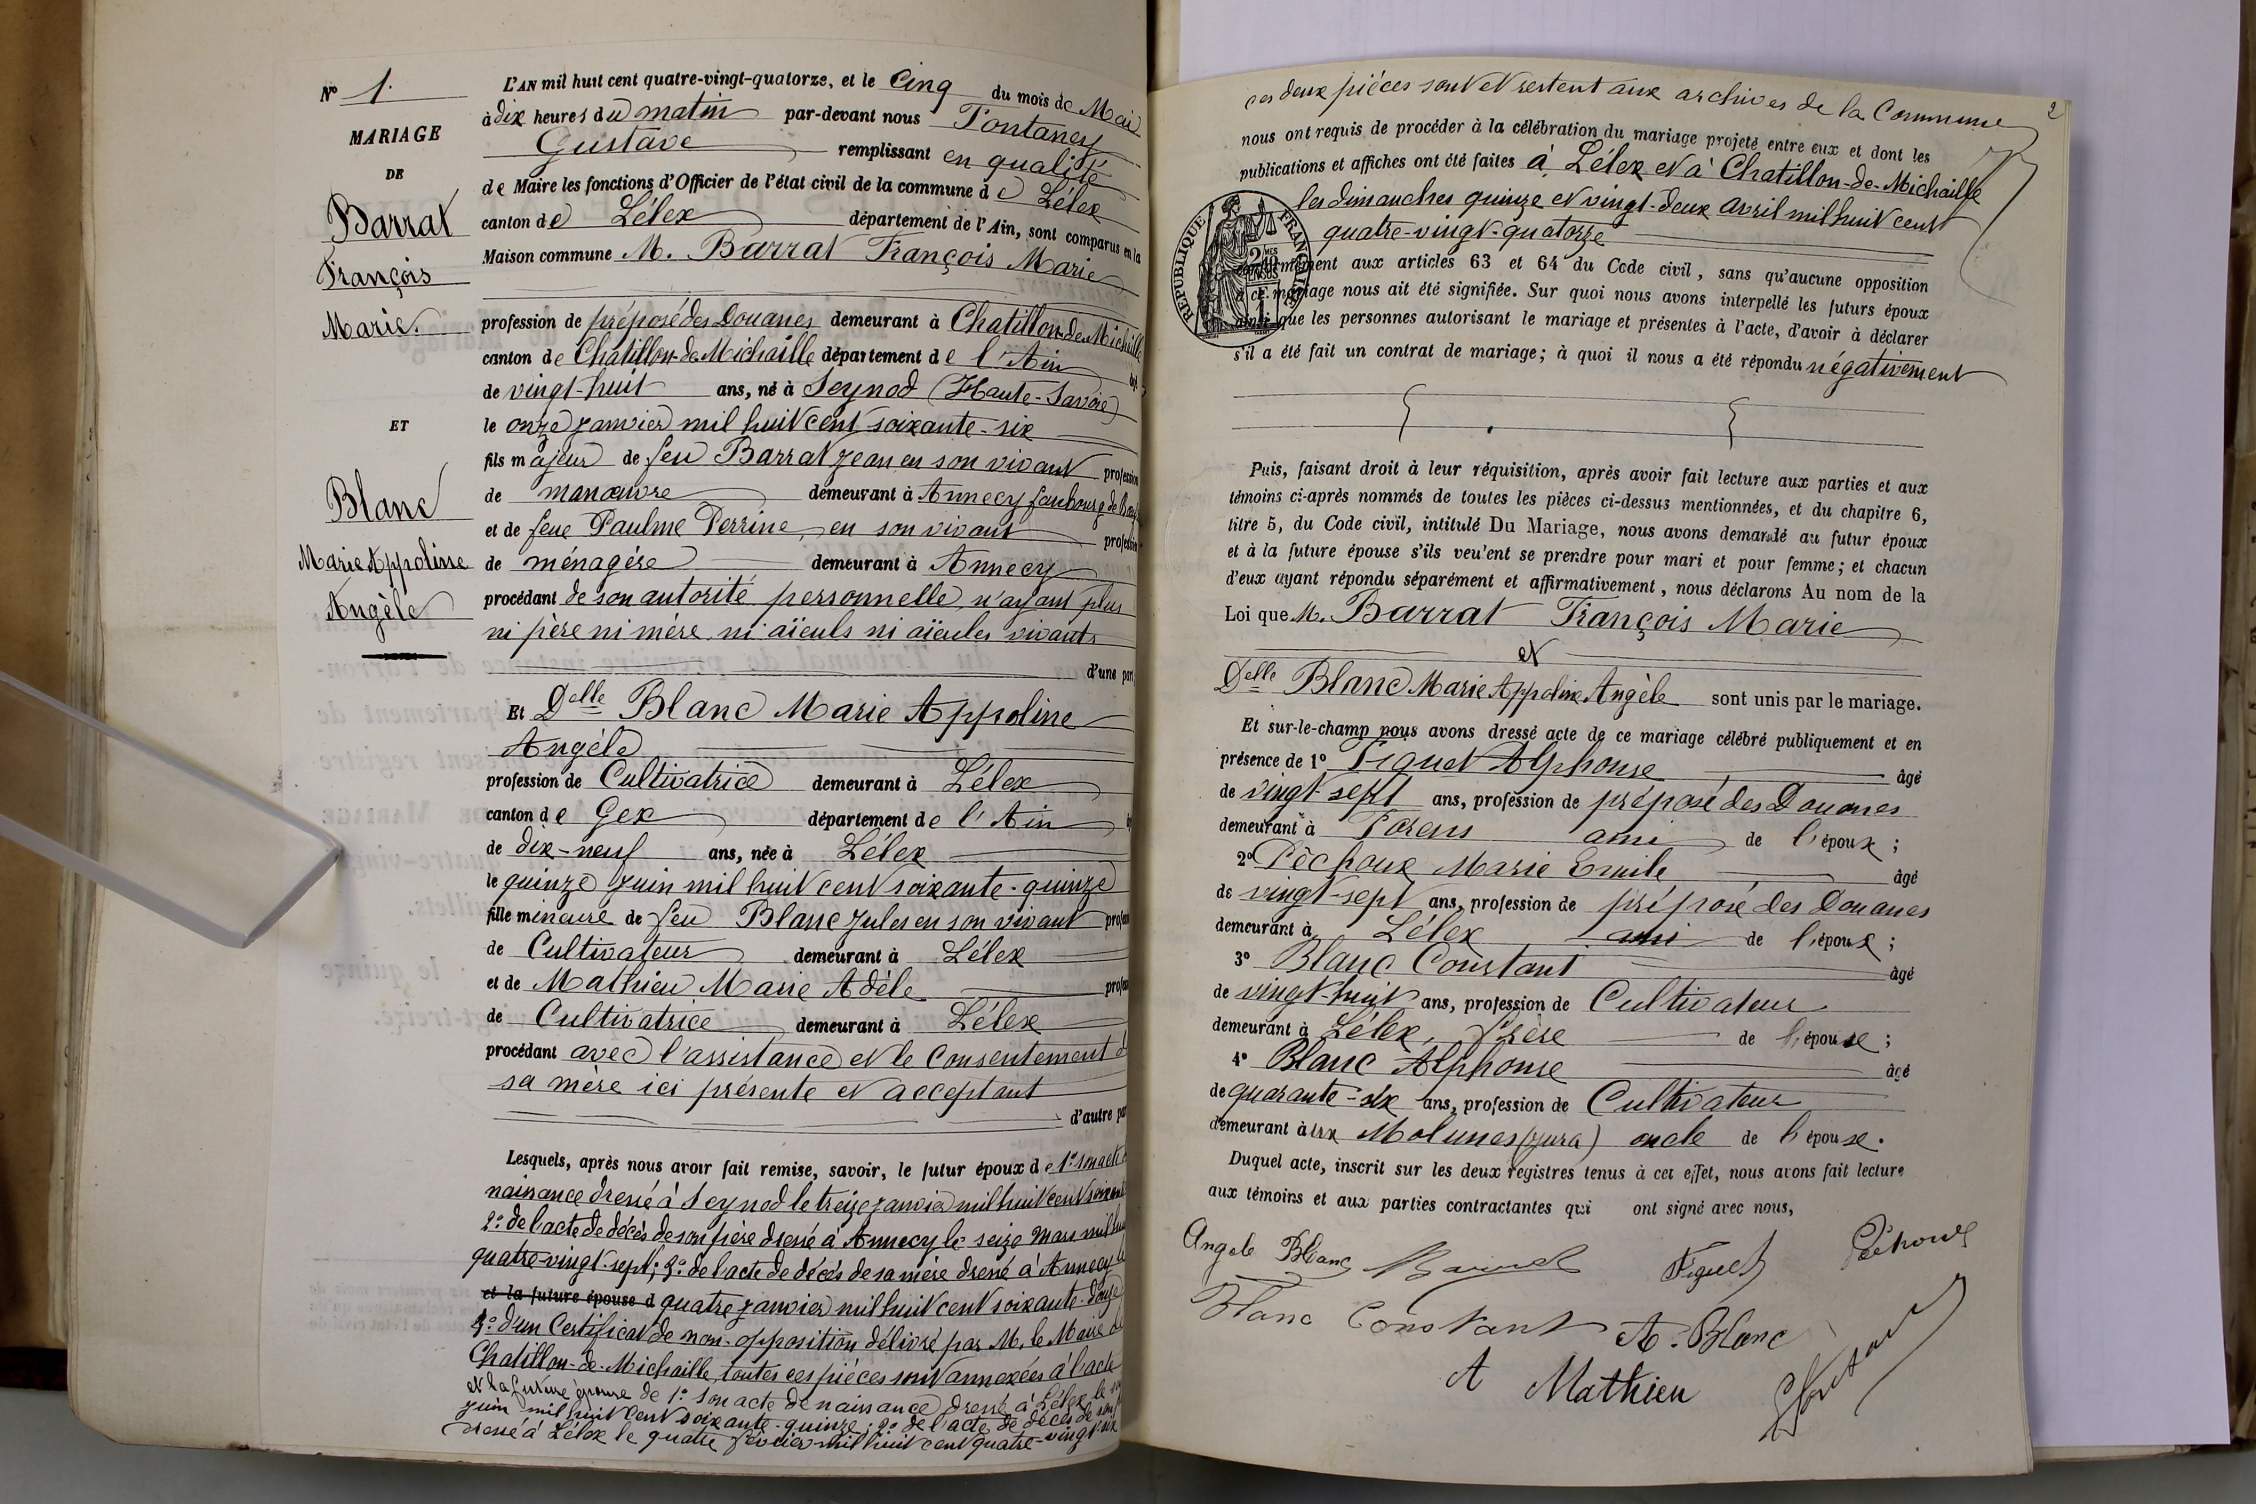 N° 1.
MARIAGE
DE
Barrat
François
Marie.
ET
Blanc
Marie Appoline
Angèle
L'AN mil huit cent quatre-vingt-quatorze, et le Cinq du mois de Mai
à dix heures du matin par-devant nous Fontanez
Gustave remplissant en qualité
de Maire les fonctions d'Officier de l'état civil de la commune de Lélex
canton de Lélex département de l'Ain, sont comparus en la
Maison commune M. Barrat François Marie
profession de préposé des Douanes demeurant à Chatillon-de-Michaille
canton de Chatillon-de-Michaille département de l'Ain âgé
de vingt-huit ans, né à Seynod (Haute-Savoie)
le onze janvier mil huit cent soixante-six
fils majeur de feu Barrat Jean en son vivant profession
de manœuvre demeurant à Annecy faubourg de
et de feue Paulme Perrine, en son vivant profession
de ménagère demeurant à Annecy
procédant de son autorité personnelle, n'ayant plus
ni père ni mère ni aïeuls ni aïeules vivants
d'une part,
Et Delle Blanc Marie Appoline
Angèle
profession de Cultivatrice demeurant à Lélex
canton de Gex département de l'Ain
de dix-neuf ans, née à Lélex
le quinze juin mil huit cent soixante-quinze
fille mineure de feu Blanc Jules en son vivant profes
de Cultivateur demeurant à Lélex
et de Mathieu Marie Adèle profes
de Cultivatrice demeurant à Lélex
procédant avec l'assistance et le Consentement d
sa mère ici présente et acceptant
d'autre par
Lesquels, après nous avoir fait remise, savoir, le futur époux de 1° son acte d
naissance dressé à Seynod le treize janvier mil huit cent soixante
2° de l'acte de décès de son père dressé à Annecy le seize mars mil hui
quatre-vingt-sept; 3° de l'acte de décès de sa mère dressé à Annecy le
et la future épouse d quatre janvier mil huit cent soixante-douze
4° d'un Certificat de non-opposition délivré par M. le Maire de
Chatillon-de-Michaille, toutes ces pièces sont annexées à l'acte
et la future épouse de 1° son acte de naissance dressé à Lélex le
juin mil huit cent soixante-quinze; 2° de l'acte de décès de son
dressé à Lélex le quatre février mil huit cent quatre-vingt-six
2
ces deux pièces sont et restent aux archives de la Commune
nous ont requis de procéder à la célébration du mariage projeté entre eux et dont les
publications et affiches ont été faites à Lélex et à Chatillon-de-Michaille
les dimanches quinze et vingt-deux avril mil huit cent
quatre-vingt-quatorze
RÉPUBLIQUE FRANÇAISE
conformément aux articles 63 et 64 du Code civil, sans qu'aucune opposition
à ce mariage nous ait été signifiée. Sur quoi nous avons interpellé les futurs époux
ainsi que les personnes autorisant le mariage et présentes à l'acte, d'avoir à déclarer
s'il a été fait un contrat de mariage; à quoi il nous a été répondu négativement
Puis, faisant droit à leur réquisition, après avoir fait lecture aux parties et aux
témoins ci-après nommés de toutes les pièces ci-dessus mentionnées, et du chapitre 6,
titre 5, du Code civil, intitulé Du Mariage, nous avons demandé au futur époux
et à la future épouse s'ils veulent se prendre pour mari et pour femme; et chacun
d'eux ayant répondu séparément et affirmativement, nous déclarons Au nom de la
Loi que M. Barrat François Marie
et
Delle Blanc Marie Appoline Angèle sont unis par le mariage.
Et sur-le-champ nous avons dressé acte de ce mariage célébré publiquement et en
présence de 1° Figuet Alphonse âgé
de vingt-sept ans, profession de préposé des Douanes
demeurant à Forens ami de l'époux;
2° Péchoux Marie Emile âgé
de vingt-sept ans, profession de préposé des Douanes
demeurant à Lélex ami de l'époux;
3° Blanc Constant âgé
de vingt-huit ans, profession de Cultivateur
demeurant à Lélex, frère de l'épouse;
4° Blanc Alphonse âgé
de quarante-six ans, profession de Cultivateur
demeurant à Les Molunes (Jura) oncle de l'épouse.
Duquel acte, inscrit sur les deux registres tenus à cet effet, nous avons fait lecture
aux témoins et aux parties contractantes qui ont signé avec nous,
Angele Blanc Figuet Péchoux
Blanc Constant A. Blanc
A Mathieu